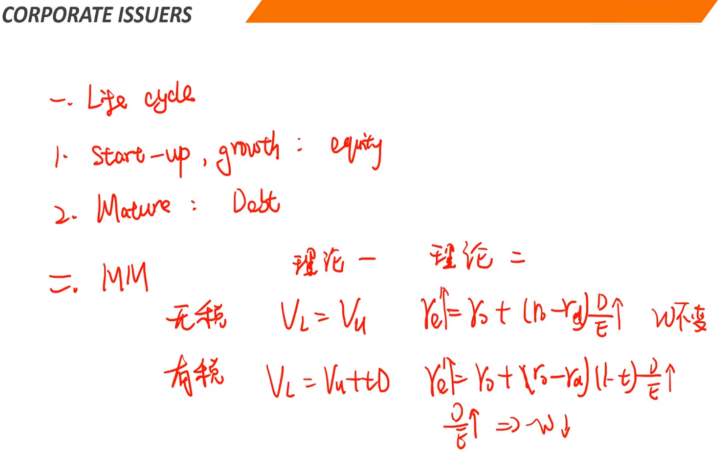 CORPORATE ISSUERS
一. Life cycle
1. Start-up, growth: equity
2. Mature: Debt
二. MM 理论一 理论二
无税 VL = Vu re↑ = r0 + (r0 - rd) D/E↑ W不变
有税 VL = Vu + tD re↑ = r0 + (r0 - rd)(1-t) D/E↑
D/E↑ ⇒ W↓